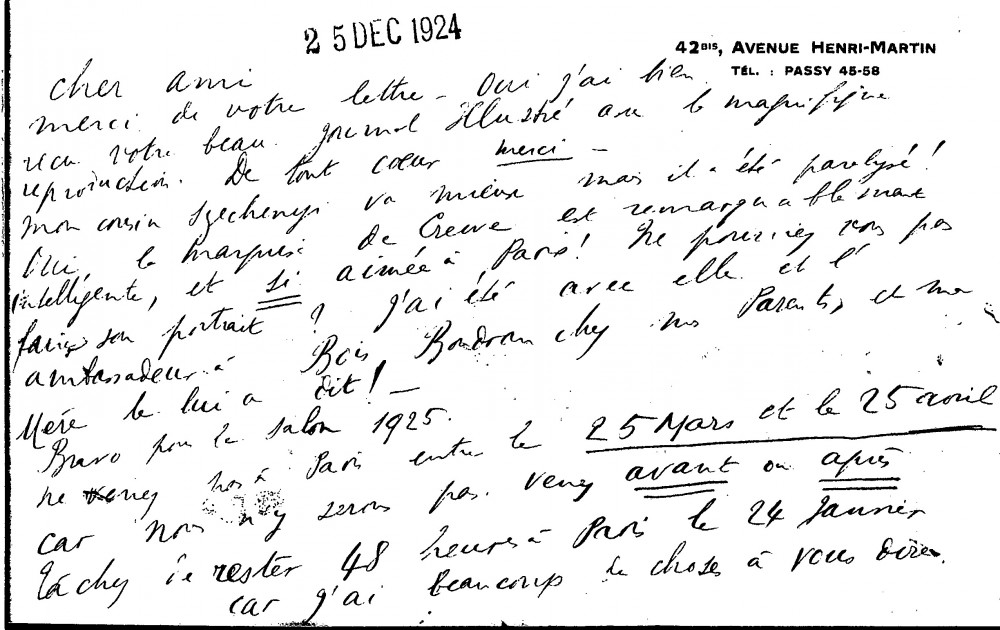 25 DEC 1924
42BIS, AVENUE HENRI-MARTIN
TÉL. : PASSY 45-58
Cher ami
merci de votre lettre - Oui j'ai bien
recu votre beau journal Illustré avec la magnifique
reproduction. De tout cœur merci -
mon cousin Szechenyi va mieux mais il a été paralysé!
Oui, la Marquise de Crewe est remarquablemant
intelligente, et si aimée à Paris! Ne pourriez vous pas
faire son portrait ? j'ai été avec elle et l'
ambassadeur à Bois Boudran chez mes Parents, et ma
Mére le lui a dit! -
Bravo pour le Salon 1925.
ne venez pas à Paris entre le 25 Mars et le 25 avril
car nous n'y serons pas. Venez avant ou après
tâchez de rester 48 heures à Paris le 24 Janvier
car j'ai beaucoup de choses à vous dire.